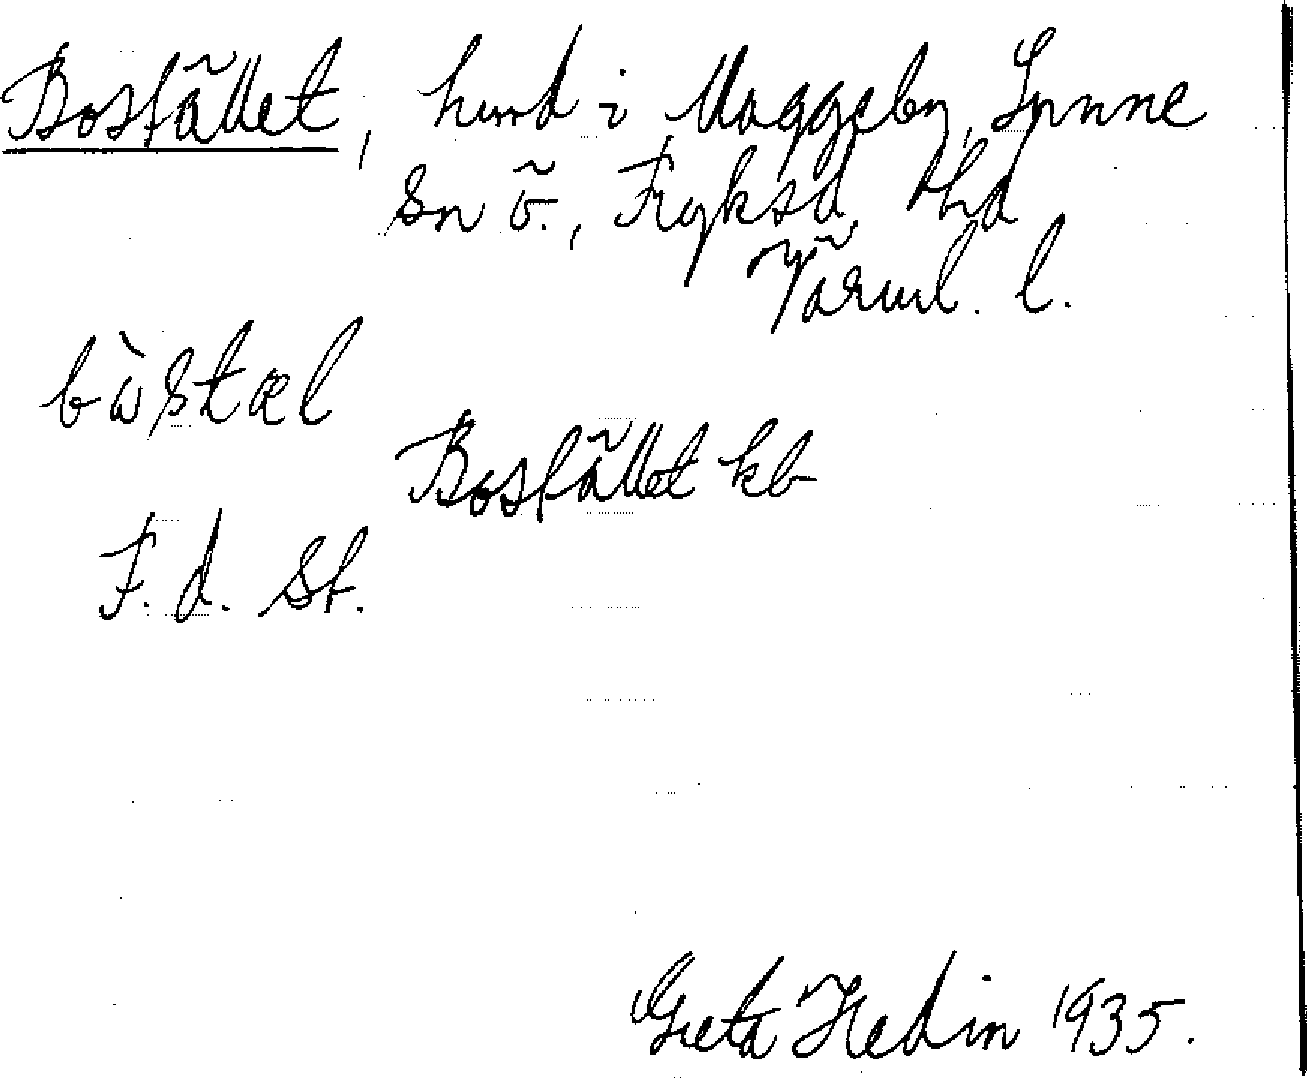 Bosfãllet, hmd i Uaggeby, Sunne
sn õ., Fryksd. hd
Värml. l.
bòstæl
Bosfãllet kb
F. d. st.
Greta Hedin 1935.